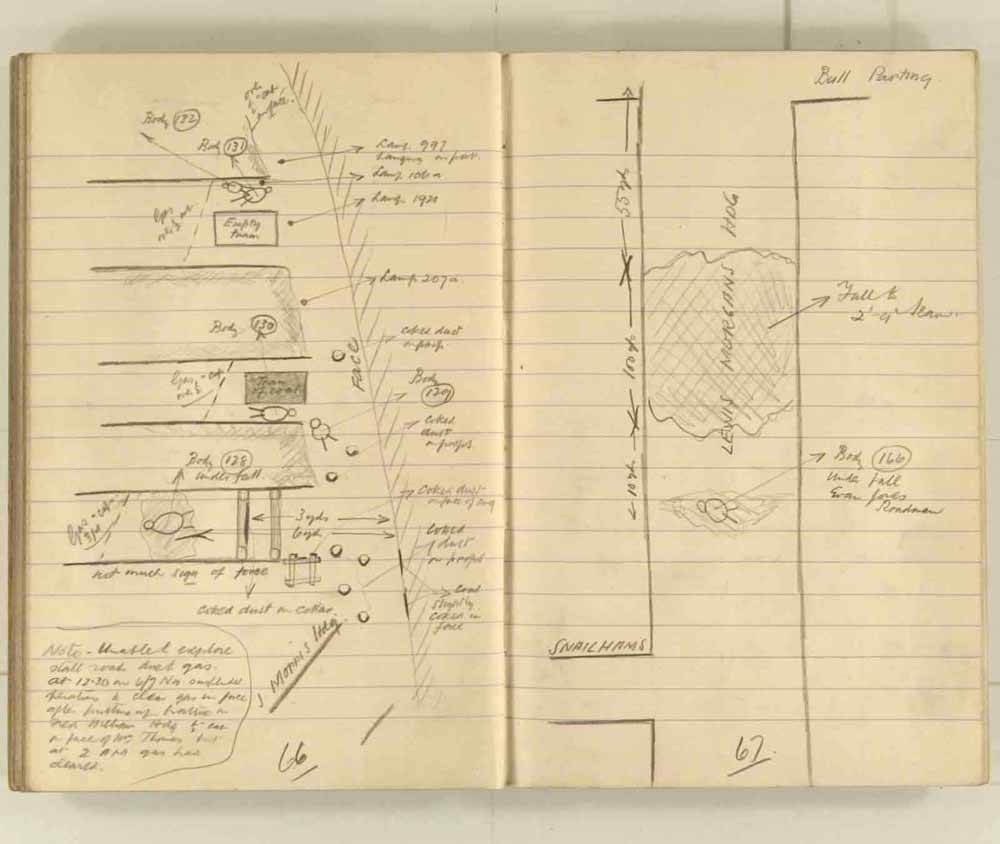 Body 132
Body 131
cap
Lamp 997
Lamp
Lamp 1920
Gas
Empty
tram
Lamp 207a
Body 130
coked dust
on props
FACE
Gas cap
Tram
of coal
Body
129
coked
dust
on props
Body 128
under fall.
Coked dust
on face of
Gas cap
3 yds
6 yds
coked
dust
on props
not much sign of force
coal
slightly
coked in
face
coked dust on collar
J Morris Hdg.
Note - Unable to explore
stall road due to gas.
at 12-30 on 6/7 Nov.
to clear gas in face
after
William Hdg cap
in face of Thomas but
at 2 AM gas had
cleared.
66
Bull Parting.
55 yds
LEWIS MORGANS HDG
Fall to
2'-9" Seam.
100 yds
10 yds
Body 166
Under fall
Evan Jones
Roadman
SNAILHAMS
67